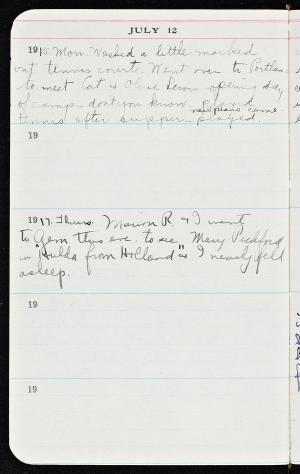 JULY 12
1915 Mon. Washed a little marked
out tennis court. Went over to Portland
to meet Cat & Olive Lewis opening day
of camp don't you know. Played
new piano came.
tennis after supper. played.
19
1917. Thurs. Marion R. & I went
to Gem this eve. to see Mary Pickford
in "Hulda from Holland" & I nearly fell
asleep.
19
19